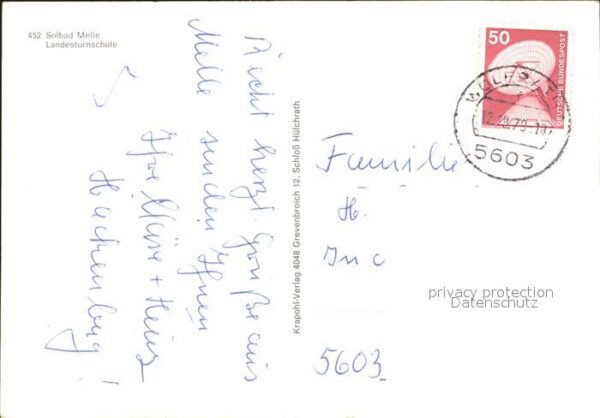 452 Solbad Melle
Landesturnschule
Recht herzl. Grüße aus
Melle senden Ihnen
+ Heinz
Hachenburg!
Krapohl-Verlag 4048 Grevenbroich 12, Schloß Hülchrath
50
DEUTSCHE BUNDESPOST
WÜLFRATH
5603
Familie
H.
5603
privacy protection
Datenschutz